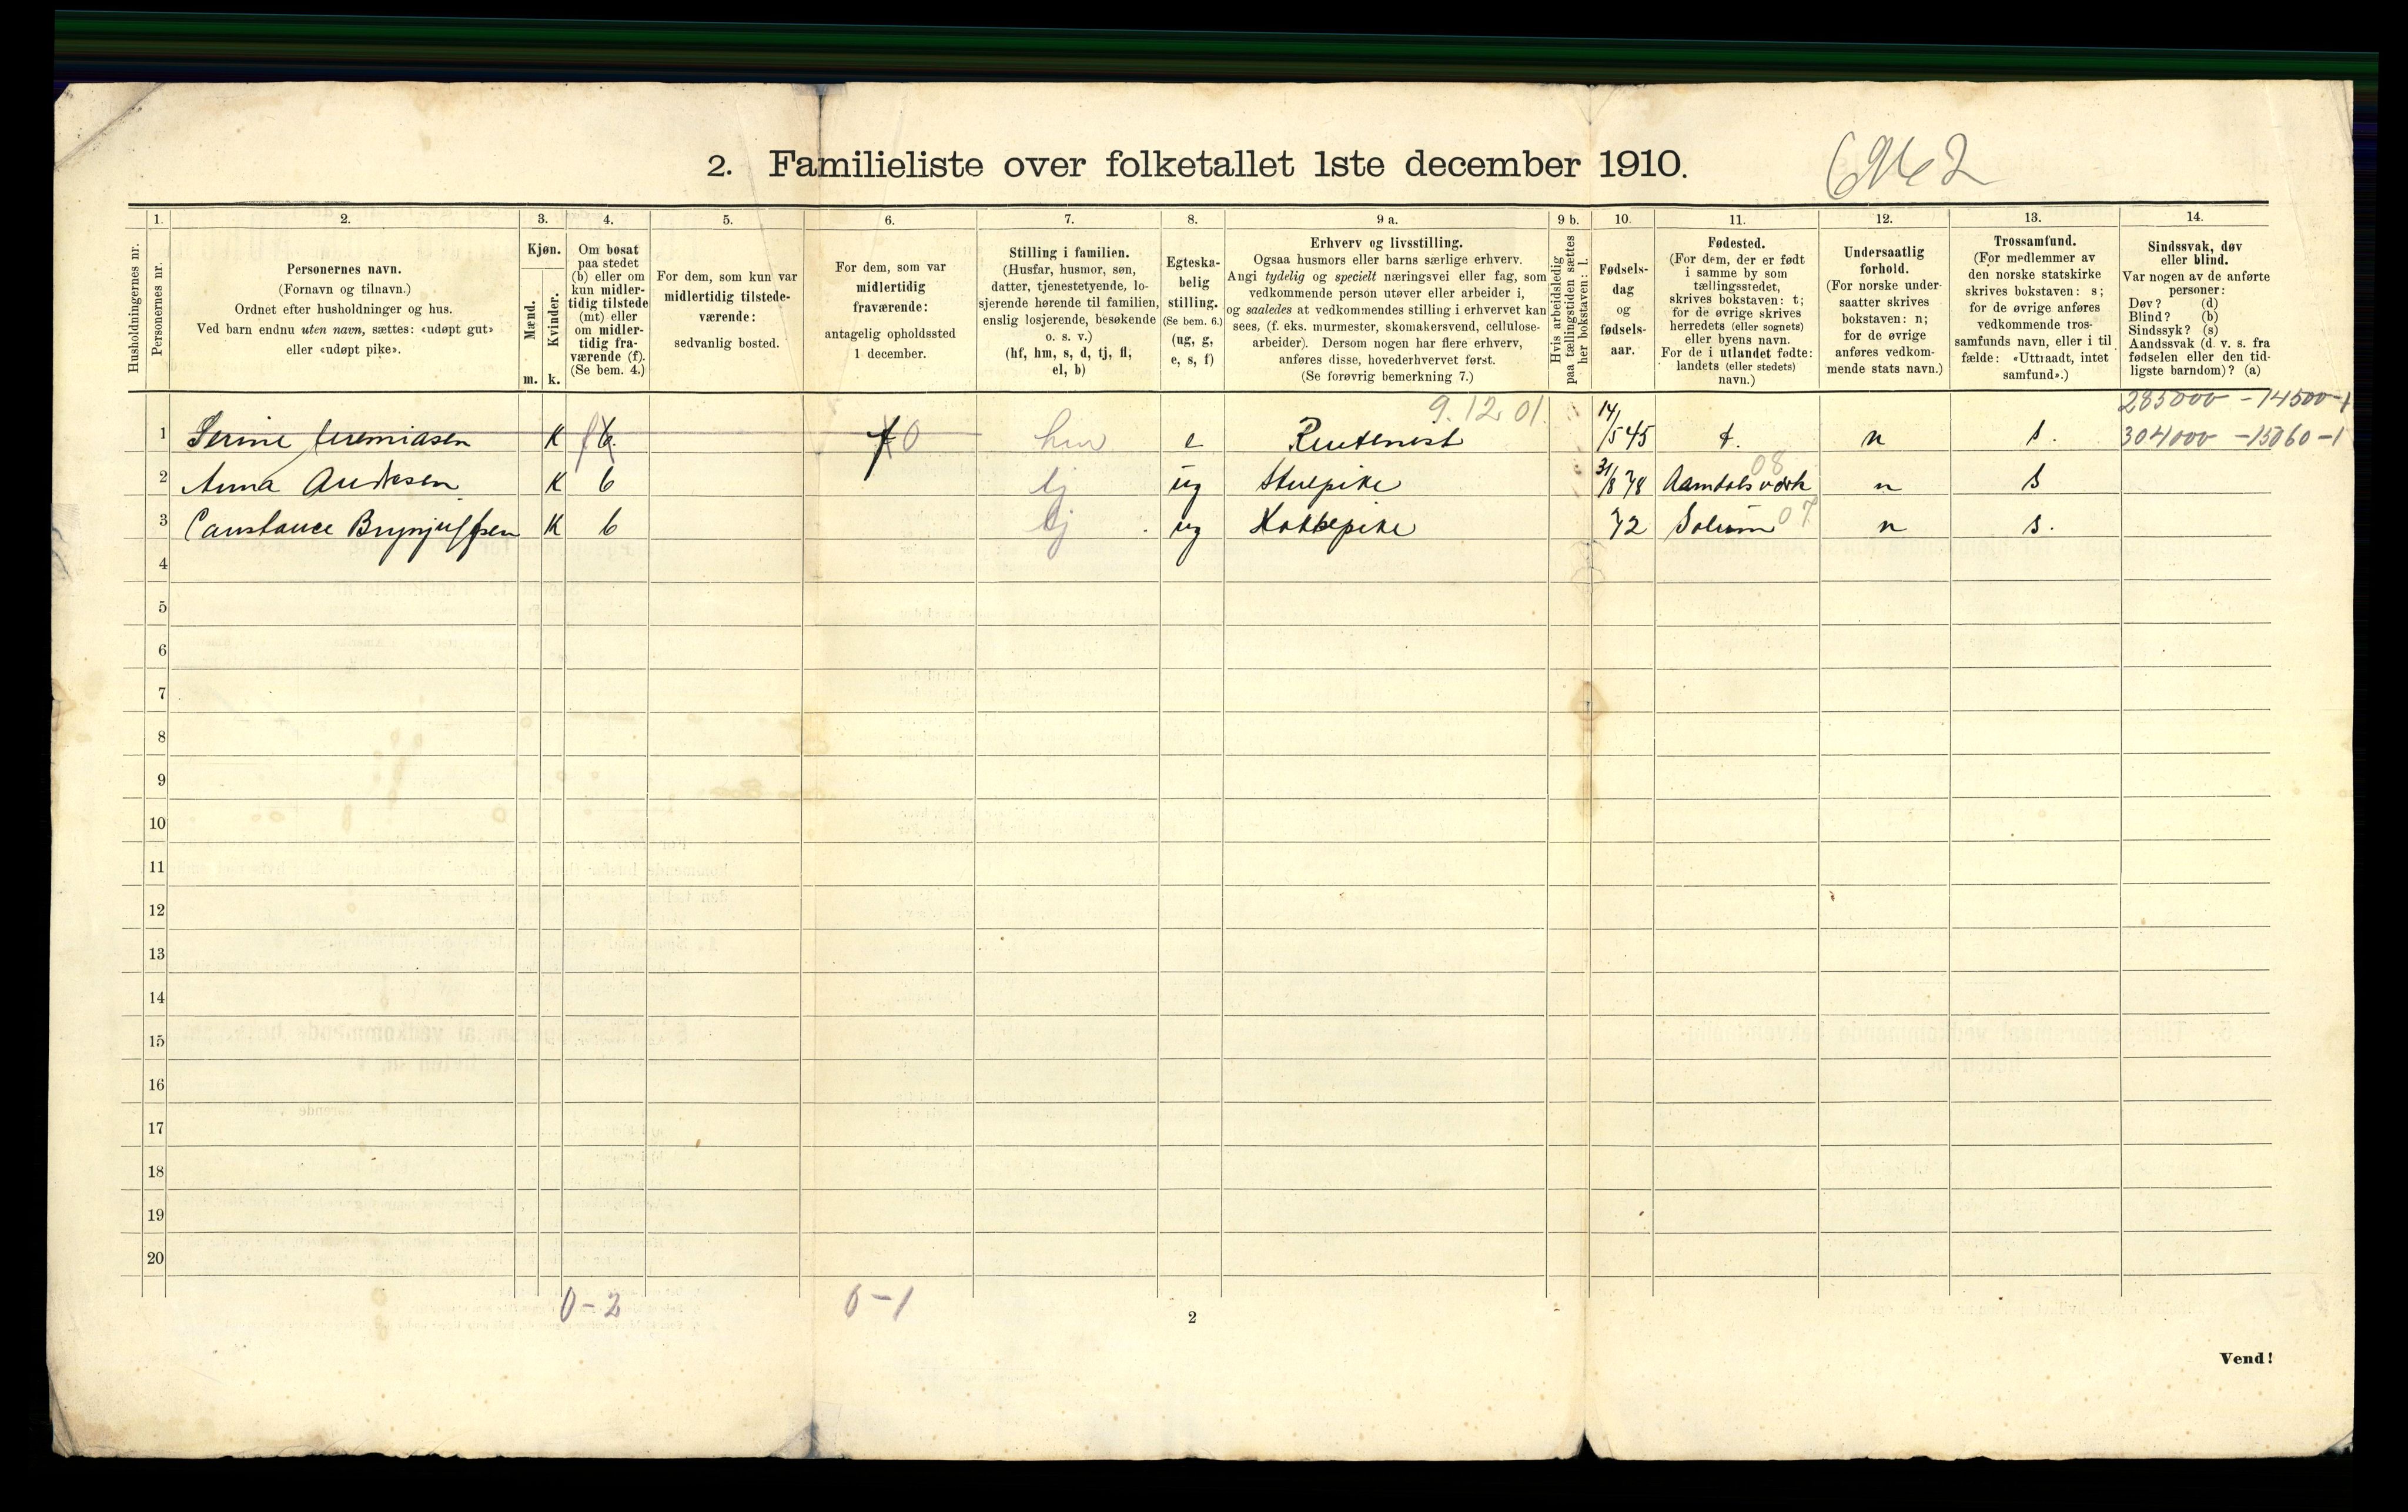 2. Familieliste over folketallet 1ste december 1910.
1. 2. 3. 4. 5. 6. 7. 8. 9 a. 9 b. 10. 11. 12. 13. 14.
Husholdningernes nr.
Personernes nr.
Personernes navn.
(Fornavn og tilnavn.)
Ordnet efter husholdninger og hus.
Ved barn endnu uten navn, sættes: «udøpt gut»
eller «udøpt pike».
Kjøn.
Mænd.
m.
Kvinder.
k.
Om bosat
paa stedet
(b) eller om
kun midler-
tidig tilstede
(mt) eller
om midler-
tidig fra-
værende (f).
(Se bem. 4.)
For dem, som kun var
midlertidig tilstede-
værende:
sedvanlig bosted.
For dem, som var
midlertidig
fraværende:
antagelig opholdssted
1 december.
Stilling i familien.
(Husfar, husmor, søn,
datter, tjenestetyende, lo-
sjerende hørende til familien,
enslig losjerende, besøkende
o. s. v.)
(hf, hm, s, d, tj, fl,
el, b)
Egteska-
belig
stilling.
(Se bem. 6.)
(ug, g,
e, s, f)
Erhverv og livsstilling.
Ogsaa husmors eller barns særlige erhverv.
Angi tydelig og specielt næringsvei eller fag, som
vedkommende person utøver eller arbeider i,
og saaledes at vedkommendes stilling i erhvervet kan
sees, (f. eks. murmester, skomakersvend, cellulose-
arbeider). Dersom nogen har flere erhverv,
anføres disse, hovederhvervet først.
(Se forøvrig bemerkning 7.)
Hvis arbeidsledig
paa tællingstiden sættes
her bokstaven: l.
Fødsels-
dag
og
fødsels-
aar.
Fødested.
(For dem, der er født
i samme by som
tællingsstedet,
skrives bokstaven: t;
for de øvrige skrives
herredets (eller sognets)
eller byens navn.
For de i utlandet fødte:
landets (eller stedets)
navn.)
Undersaatlig
forhold.
(For norske under-
saatter skrives
bokstaven: n;
for de øvrige
anføres vedkom-
mende stats navn.)
Trossamfund.
(For medlemmer av
den norske statskirke
skrives bokstaven: s;
for de øvrige anføres
vedkommende tros-
samfunds navn, eller i til-
fælde: «Uttraadt, intet
samfund».)
Sindssvak, døv
eller blind.
Var nogen av de anførte
personer:
Døv? (d)
Blind? (b)
Sindssyk? (s)
Aandssvak (d. v. s. fra
fødselen eller den tid-
ligste barndom)? (a)
9.12.01. 285000 - 14500 - 1
1 Serine Jeremiasen K f b. f 0 hm e Rentenest 14/5 45 t. n s. 304000 - 15060 - 1
08
2 Anna Andresen K b tj ug Stuepike 31/8 78 Aamdals værk n s
3 Constance Brynjulfsen K b tj ug Kokkepike 72 Solum 07 n s.
4
5
6
7
8
9
10
11
12
13
14
15
16
17
18
19
20
0-2 0-1
2
Vend!